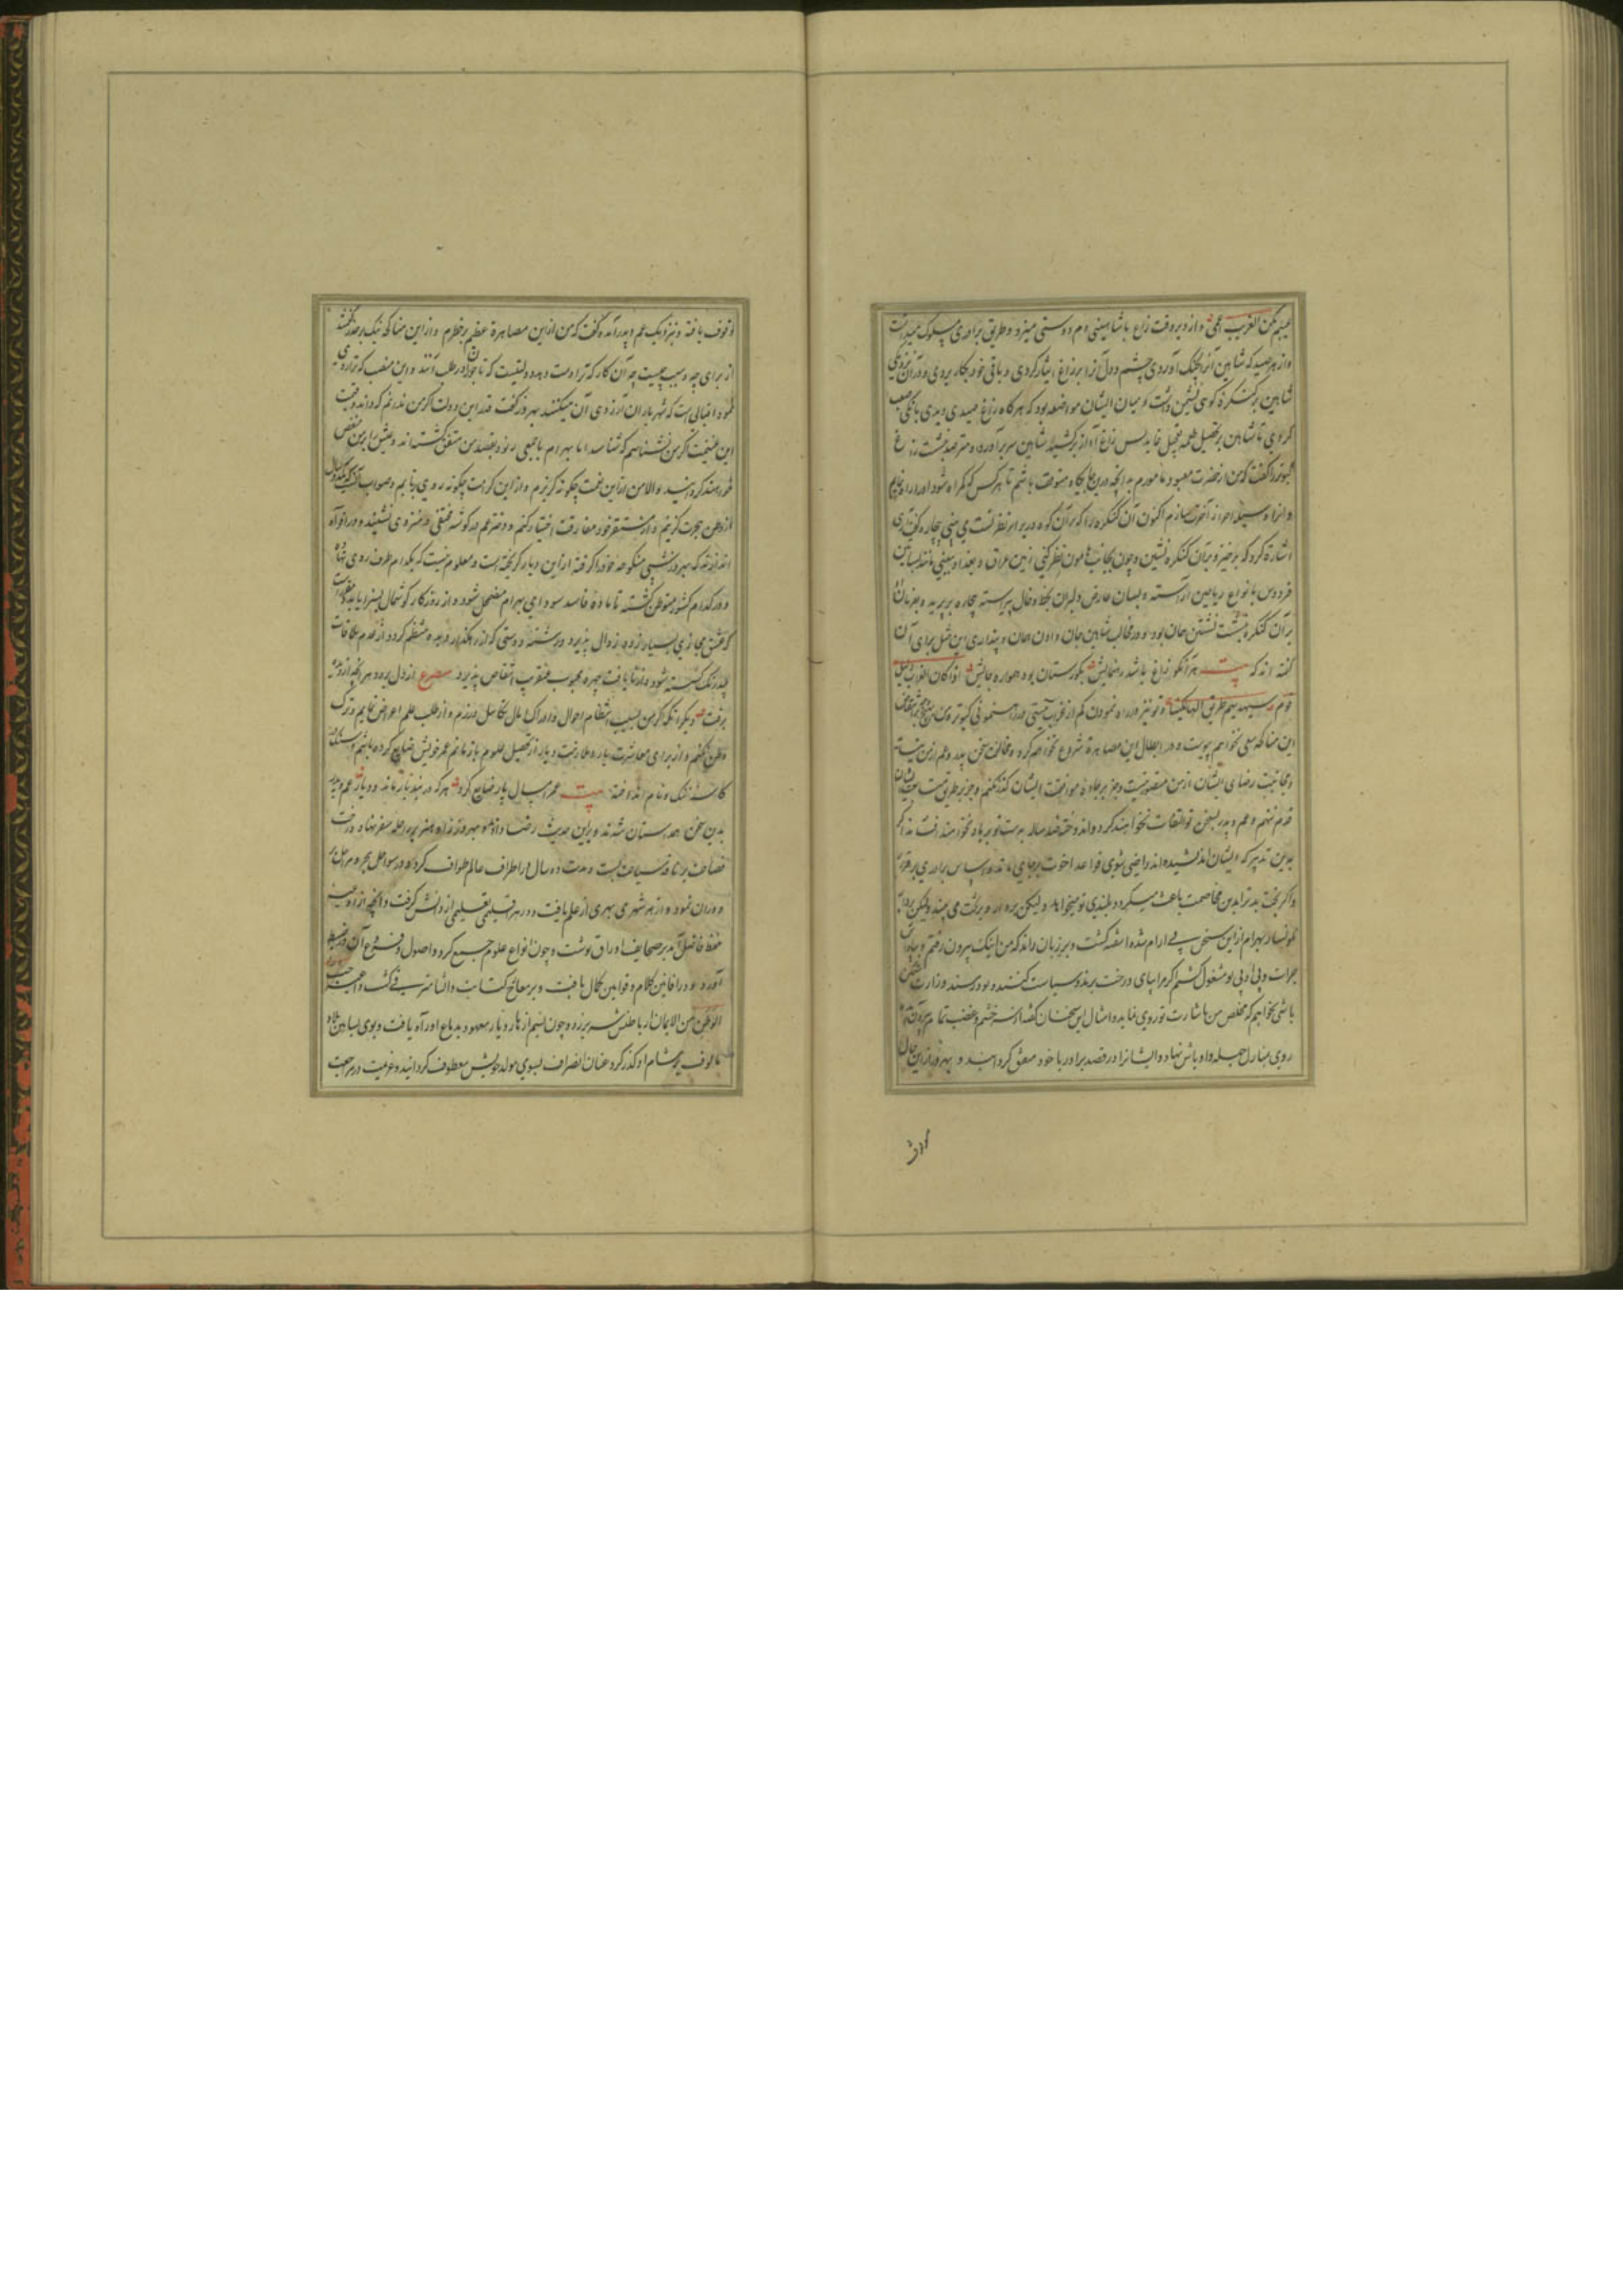 عیبم مکن الغریب اعمی و از دیر وقت زاغ با شاهینی دم دوستی میزد و طریق برادری مسلوک میداشت
و از هر صید که شاهین آنرا بچنک آوردی چشم و دل آنرا بر زاغ ایثار کردی و باقی خود بکار بردی و در آن نزدیکی
شاهین بر کنکره کوهی نشیمن داشت و میان ایشان مواضعه بود که هرکاه زاغ صیدی دیدی بانکی
کردی تا شاهین بر تحصیل طعمه تعجیل نماید پس زاغ آواز برکشید شاهین سر برآورد و مترصد نشست زاغ
کبوتر را کفت که من از حضرت معبود مامورم به آنکه درین جایکاه متوقف باشم تا هر کس که کمراه شود او را راه نمایم
و آنرا وسیله احراز آخرت سازم اکنون آن کنکره را که بر آن کوه در برابر نظر تست می بینی
اشارة کرد که برخیز و بر آن کنکره نشین و چون بجانب هامون نظر کنی زمین عراق و بغداد بینی مانند بساتین
فردوس بانواع ریاحین آراسته و بسان عارض دلبران بخط و خال پیراسته بیچاره بپرید و
بر آن کنکره نشست نشستن همان بود و در مخالب شاهین جان دادن همان و پنداری این مثل برای آن
کفته اند که بیت هر آنکو زاغ باشد رهنمایش بکورستان بود همواره جایش اذا کان الغراب دلیل
قوم سیهدیهم طریق الهالکینا و تو نیز در راه نمودن کم از غراب نیستی و در رهنمونی کبوتر
این مناکحه سعی نخواهم پیوست و در ابطال این مصاهرة شروع نخواهم کرد و مخالفت سخن پدر و عم از من نیاید
و مجانبت رضای ایشان از من متصور نیست و جز بر جاده موافقت ایشان کذر نکنم و جز بر طریق متابعت ایشان
قدم ننهم و عم و پدر بسخن تو التفات نخواهند کرد و اندوخته صد ساله بدست تو بر باد نخواهند داد اکر
بدین تدبیر که ایشان اندیشیده اند راضی شوی قواعد اخوت برجای ماند و اساس برادری برقرار
و اکر بخت بد ترا بدین مخاصمت باعث میکردد بلندی تو میخواهد ولیکن بر دار و برکت می بیند ولیکن
نکونسار بهرام ازین سخن بی آرام شده آشفته کشت و بر زبان راند که من اینک بیرون رفتم و
جرات و پی او پی تو مشغول کشتم اکر مرا پای درخت برند و سیاست کنند و تو در مسند وزارت
باشی بخواهم که مخلص من باشارت تو روی نماید و امثال این سخنان کفته از سر خشم و غضب تمام بیرون
روی بمنازل جهله و اوباش نهاد و ایشانرا در قصد برادر با خود متفق کردانید و بهروز از این حال
وقوف یافته و بنزدیک عم و پدر آمد و کفت که من از این مصاهرة عظیم بر خطرم و از این مناکحه نیک بر حذر کفتند
از برای چه و سبب چیست چه آن کار که ترا دست دهد دولتیست که تاجوران در طلب آنند و این منصب که ترا روی
نمود اقبالی است که شهریاران آرزوی آن میکنند بهروز کفت قدر این دولت اکر من ندانم که داند و قیمت
این غنیمت اکر من نشناسم که شناسد اما بهرام با جمعی رنود بقصد من متفق کشته اند و عیش را بر من منغص
خواهند کردانید و الا من از این نعمت چکونه کریزم و از این کرامت چکونه روی برتابم و صواب آنست که یکچند سال
از وطن هجرت کزینم و از مستقر خود مفارقت اختیار کنم و دختر عم در کوشه مختفی و منزوی نشیند و در افواه
اندازند که بهروز شبی منکوحه خود را کرفته از این دیار کریخته است و معلوم نیست که بکدام طرف روی نهاد
و در کدام کشور متوطن کشته تا ماده فاسد سودای بهرام مضمحل شود و از روزکار کوشمال بسزا یابد
که عشق مجازی بسیار زود زوال پذیرد و رشته دوستی که از رهکذار دیده منتظم کردد از عدم ملاقات
بیدرنک کسسته شود و از نایافت چهره محبوب مرغوب انتقاص پذیرد مصرع از دل برود هر آنچه از دیده
برفت دیکر آنکه اکر من بسبب انتظام احوال و ادراک مال تکاسل ورزم و از طلب علم اعراض نمایم و ترک
وطن نکنم و از برای معاشرت یار و ملازمت دیار از تحصیل علوم بازمانم عمر خویش ضایع کرده باشم و
کاشانه ننک و نام انداخته بیت عمر امسال پار ضایع کرد هر که در بند یار ماند و دیار عم و پدر
بدین سخن همداستان شدند و برین حدیث رضا دادند و بهروز زاد هنر بر راحله سفر نهاد و رخت
فصاحت بر ناقه سیاحت بست و مدت ده سال در اطراف عالم طواف کرد و در سواحل بحر و مراحل
دوران نمود و از هر شهری بهری از علم یافت و در هر اقلیمی تعلیمی از دانش کرفت و آنچه از راه
حفظ حاصل آمد بر صحایف اوراق نوشت و چون انواع علوم جمع کرد و اصول و فروع آن در ضبط
آورد و در افانین کلام و قوانین کمال یافت و بر معالج کتابت و انشا مشرف کشت داعیه حب
الوطن من الایمان از باطنش سر برزد و چون نسیم ازهار دیار معهود بدماغ او راه یافت و بوی بساتین بلاد
مالوف بر مشام او کذر کرد عنان انصراف بسوی مولد خویش معطوف کردانید و عزیمت در مراجعت